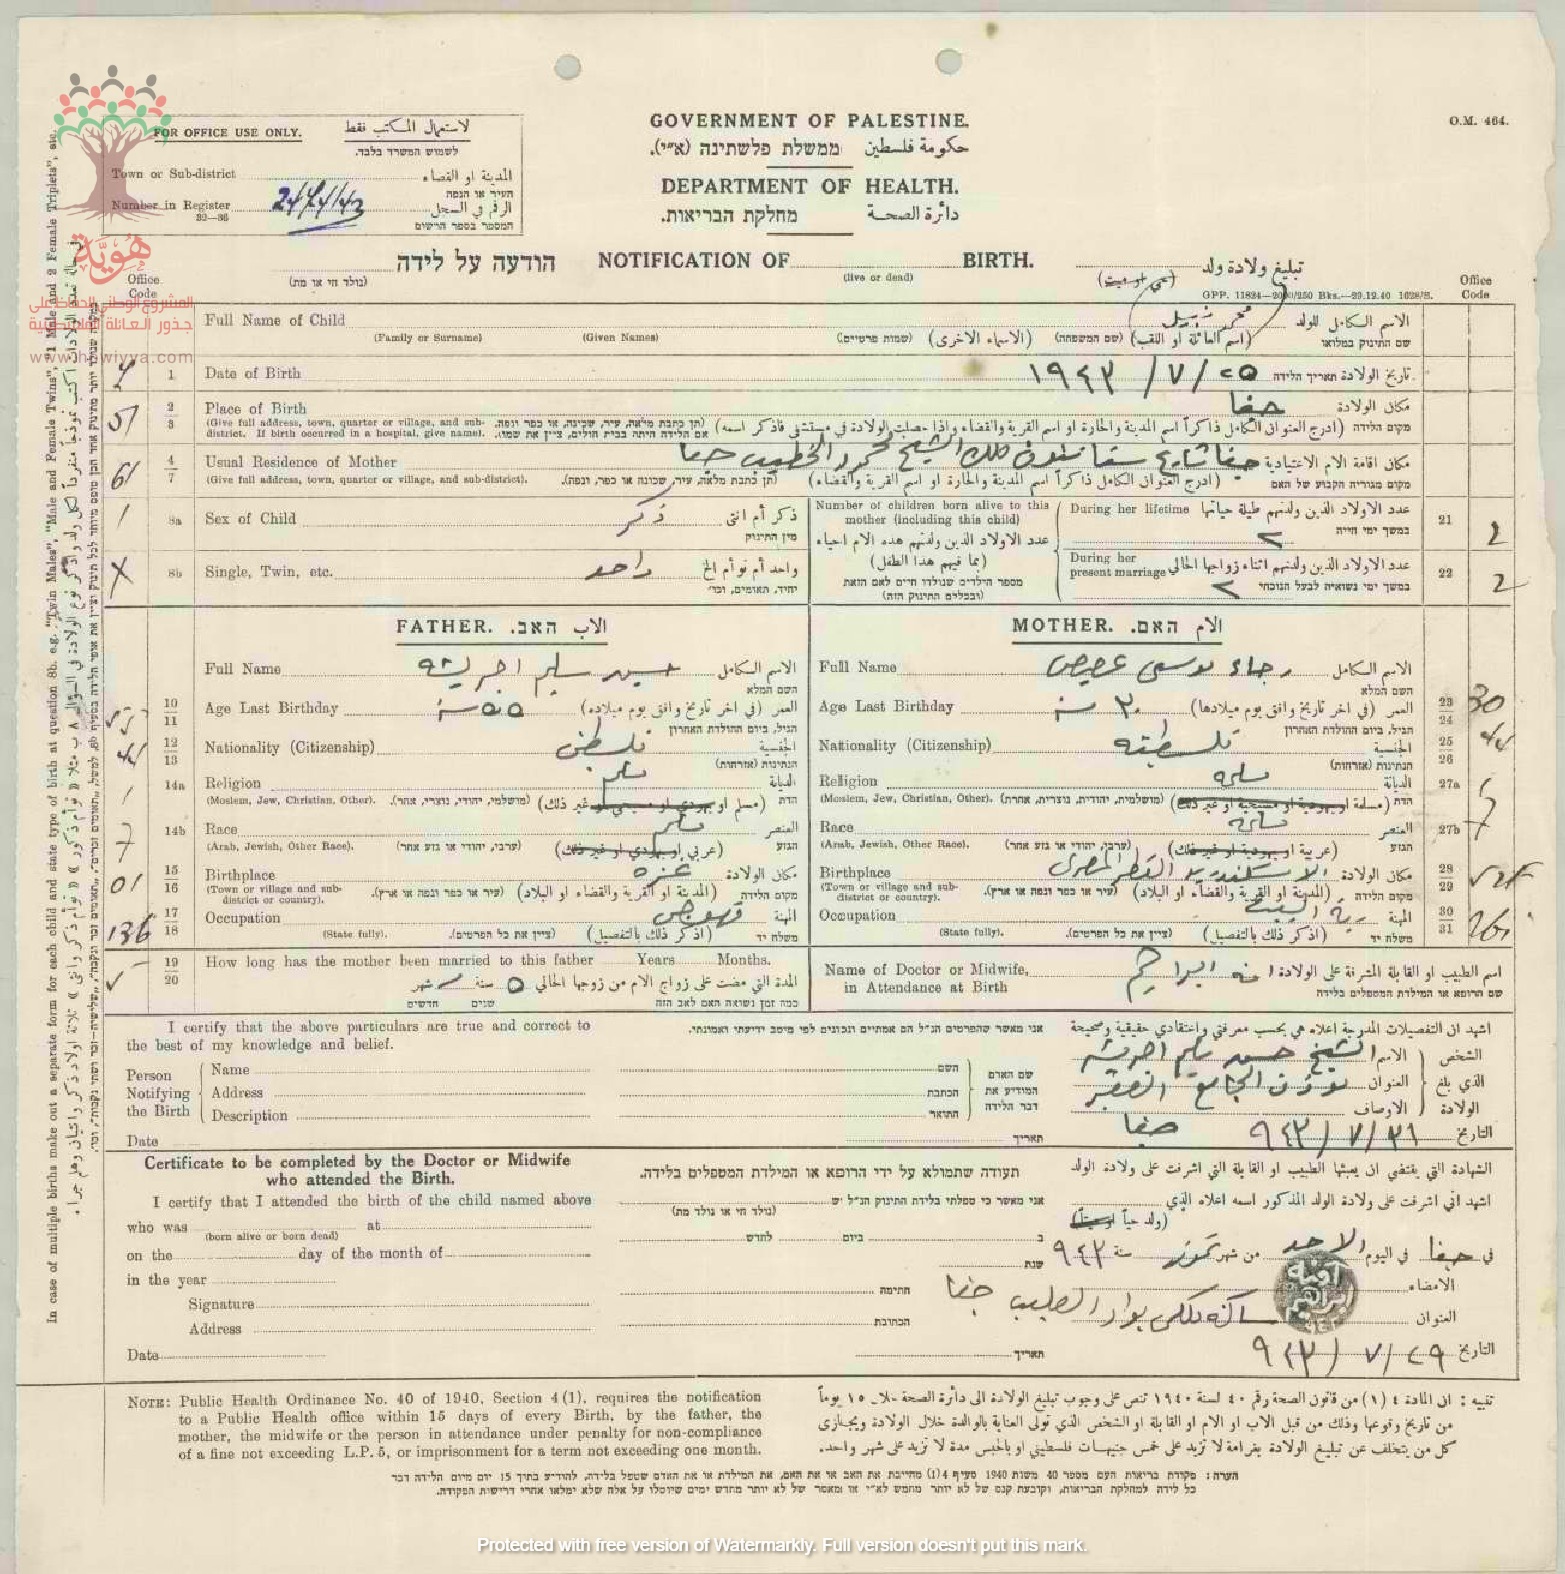 O.M. 464.
FOR OFFICE USE ONLY. لاستعمال المكتب فقط
לשמוש המשרד בלבד.
Town or Sub-district المدينة او القضاء
העיר או הנפה
Number in Register 2474/43 الرقم في السجل
32—36 המספר בספר הרשום
GOVERNMENT OF PALESTINE.
حكومة فلسطين ממשלת פלשתינה (א״י).
DEPARTMENT OF HEALTH.
دائرة الصحة מחלקת הבריאות.
הודעה על לידה NOTIFICATION OF BIRTH. تبليغ ولادة ولد
(בולד חי או מת) (live or dead) (حي او ميت)
GPP. 11824—2000/250 Bks.—29.12.40 1628/S.
Office Code
Office Code
هُوِيَّة
المشروع الوطني للحفاظ على
جذور العائلة الفلسطينية
www.howiyya.com
Full Name of Child محمد نبيل الاسم الكامل للولد
שם התינוק במלואו
(Family or Surname) (Given Names) (שמות פרטיים) (الاسماء الاخرى) (שם המשפחה) (اسم العائلة او اللقب)
1 Date of Birth ٢٥/٧/١٩٤٣ تاريخ الولادة תאריך הלידה
2 3 Place of Birth حيفا مكان الولادة
(Give full address, town, quarter or village, and sub-district. If birth occurred in a hospital, give name). (תן כתבת מלאה, עיר, שכונה, או כפר ונפה. אם הלידה היתה בבית חולים, ציין את שמו). (ادرج العنوان الكامل ذاكراً اسم المدينة والحارة او اسم القرية والقضاء واذا حصلت الولادة في مستشفى فاذكر اسمه) מקום הלידה
4 7 Usual Residence of Mother حيفا شارع ستانتون ملك الشيخ محمد الخطيب حيفا مكان اقامة الام الاعتيادية
(Give full address, town, quarter or village, and sub-district). (תן כתבת מלאה, עיר, שכונה או כפר, ונפה). (ادرج العنوان الكامل ذاكراً اسم المدينة والحارة او اسم القرية والقضاء) מקום מגוריה הקבוע של האם
8a Sex of Child ذكر ذكر أم انثى
מין התינוק
8b Single, Twin, etc. واحد واحد أم توأم الخ
יחיד, תאומים, וכו׳
Number of children born alive to this mother (including this child)
عدد الاولاد الذين ولدتهم هذه الام احياء
(بما فيهم هذا الطفل)
מספר הילדים שנולדו חיים לאם הזאת
(ובכללם התינוק הזה)
During her lifetime عدد الاولاد الذين ولدتهم طيلة حياتها 21 2
במשך ימי חייה ٢
During her present marriage عدد الاولاد الذين ولدتهم اثناء زواجها الحالي 22 2
במשך ימי נשואיה לבעל הנוכחי ٢
FATHER. האב. الاب
Full Name حسين سليم الاسم الكامل
השם המלא
10 11 Age Last Birthday ٥٥ سنة العمر (في اخر تاريخ وافق يوم ميلاده)
הגיל, ביום ההולדת האחרון
12 13 Nationality (Citizenship) فلسطيني الجنسية
הנתינות (אזרחות)
14a Religion مسلم الديانة
(Moslem, Jew, Christian, Other). (מושלמי, יהודי, נוצרי, אחר). (مسلم او يهودي او مسيحي او غير ذلك) הדת
14b Race مسلم العنصر
(Arab, Jewish, Other Race). (ערבי, יהודי או גזע אחר) (عربي او يهودي او غير ذلك) הגזע
15 16 Birthplace غزه مكان الولادة
(Town or village and sub-district or country). (עיר או כפר ונפה או ארץ). (المدينة او القرية والقضاء او البلاد) מקום הלידה
17 18 Occupation قهوجي المهنة
(State fully). (ציין את כל הפרטים). (اذكر ذلك بالتفصيل) משלח יד
136
19 20 How long has the mother been married to this father Years Months.
المدة التي مضت على زواج الام من زوجها الحالي ٥ سنة شهر
כמה זמן נשואה האם לאב הזה שנים חדשים
MOTHER. האם. الام
Full Name رجاء موسى الاسم الكامل
השם המלא
Age Last Birthday ٣٠ سنة العمر (في اخر تاريخ وافق يوم ميلادها) 23 24 30
הגיל, ביום ההולדת האחרון
Nationality (Citizenship) فلسطينيه الجنسية 25 26
הנתינות (אזרחות)
Religion مسلمه الديانة 27a
(Moslem, Jew, Christian, Other). (מושלמית, יהודית, נוצרית, אחרת). (مسلمة او يهودية او مسيحية او غير ذلك) הדת
Race مسلمه العنصر 27b
(Arab, Jewish, Other Race). (ערבי, יהודי או גזע אחר) (عربية او يهودية او غير ذلك) הגזע
Birthplace الاسكندريه القطر المصري مكان الولادة 28 29
(Town or village and sub-district or country). (עיר או כפר ונפה או ארץ). (المدينة او القرية والقضاء او البلاد) מקום הלידה
Occupation ربة البيت المهنة 30 31
(State fully). (ציין את כל הפרטים). (اذكر ذلك بالتفصيل) משלח יד
Name of Doctor or Midwife, in Attendance at Birth ابراهيم اسم الطبيب او القابلة المشرفة على الولادة
שם הרופא או המילדת המטפלים בלידה
I certify that the above particulars are true and correct to the best of my knowledge and belief.
אני מאשר שהפרטים הנ״ל הם אמתיים ונכונים לפי מיטב ידיעתי ואמונתי.
اشهد ان التفصيلات المدرجة اعلاه هي بحسب معرفتي واعتقادي حقيقية وصحيحة
Person Notifying the Birth
Name השם الاسم الشيخ حسين سليم
Address הכתבת العنوان مؤذن الجامع الصغير
Description התואר الاوصاف
שם האדם המודיע את דבר הלידה
الشخص الذي بلغ الولادة
Date תאריך التاريخ ٣١/٧/٩٤٣ حيفا
Certificate to be completed by the Doctor or Midwife who attended the Birth.
תעודה שתמולא על ידי הרופא או המילדת המטפלים בלידה.
الشهادة التي يقتضي ان يعبئها الطبيب او القابلة التي اشرفت على ولادة الولد
I certify that I attended the birth of the child named above
אני מאשר כי טפלתי בלידת התינוק הנ״ל יש
(נולד חי או נולד מת)
اشهد اني اشرفت على ولادة الولد المذكور اسمه اعلاه الذي
(ولد حياً او ميتاً)
who was at
(born alive or born dead)
on the day of the month of
ב ביום לחדש
في حيفا في اليوم الاحد من شهر تموز سنة ٩٤٣
in the year שנת
Signature חתימה الامضاء
Address הכתובת العنوان
Date תאריך التاريخ ٢٩/٧/٩٤٣
NOTE: Public Health Ordinance No. 40 of 1940, Section 4(1), requires the notification
to a Public Health office within 15 days of every Birth, by the father, the
mother, the midwife or the person in attendance under penalty for non-compliance
of a fine not exceeding L.P. 5, or imprisonment for a term not exceeding one month.
تنبيه : ان المادة ٤ (١) من قانون الصحة رقم ٤٠ لسنة ١٩٤٠ تنص على وجوب تبليغ الولادة الى دائرة الصحة خلال ١٥ يوماً
من تاريخ وقوعها وذلك من قبل الاب او الام او القابلة او الشخص الذي تولى العناية بالوالدة خلال الولادة ويجازى
كل من يتخلف عن تبليغ الولادة بغرامة لا تزيد على خمس جنيهات فلسطيني او بالحبس مدة لا تزيد على شهر واحد.
הערה: פקודת בריאות העם מספר 40 משנת 1940 סעיף 4(1) מחייבת את האב או את האם, את המילדת או את האדם שטפל בלידה, להודיע בתוך 15 יום מיום הלידה דבר
כל לידה למחלקת הבריאות, וקובעת קנס של לא יותר מחמש לא״י או מאסר של לא יותר מחדש ימים שיוטלו על אלה שלא ימלאו אחרי דרישות הפקודה.
In case of multiple births make out a separate form for each child and state type of birth at question 8b. e.g. "Twin Males", "Male and Female Twins", "1 Male and 2 Female Triplets", etc.
Protected with free version of Watermarkly. Full version doesn't put this mark.